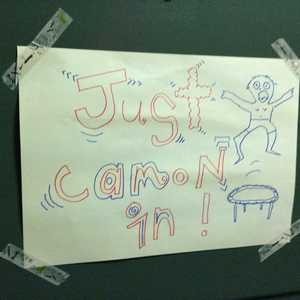 Just
camoN
in!